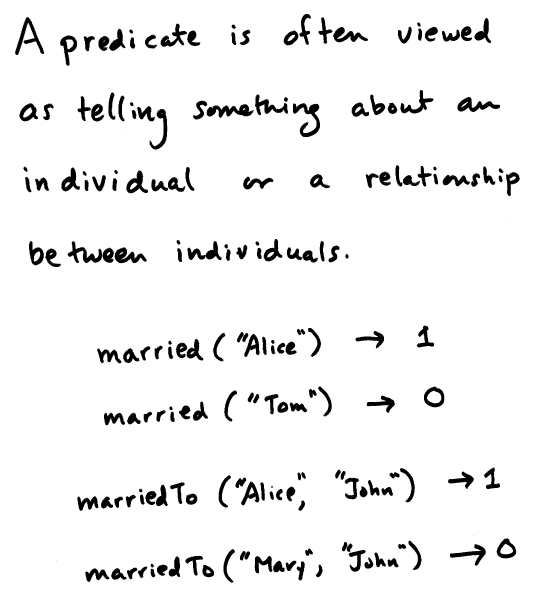 A predicate is often viewed
as telling something about an
individual or a relationship
between individuals.
married ("Alice") → 1
married ("Tom") → 0
marriedTo ("Alice", "John") → 1
marriedTo ("Mary", "John") → 0